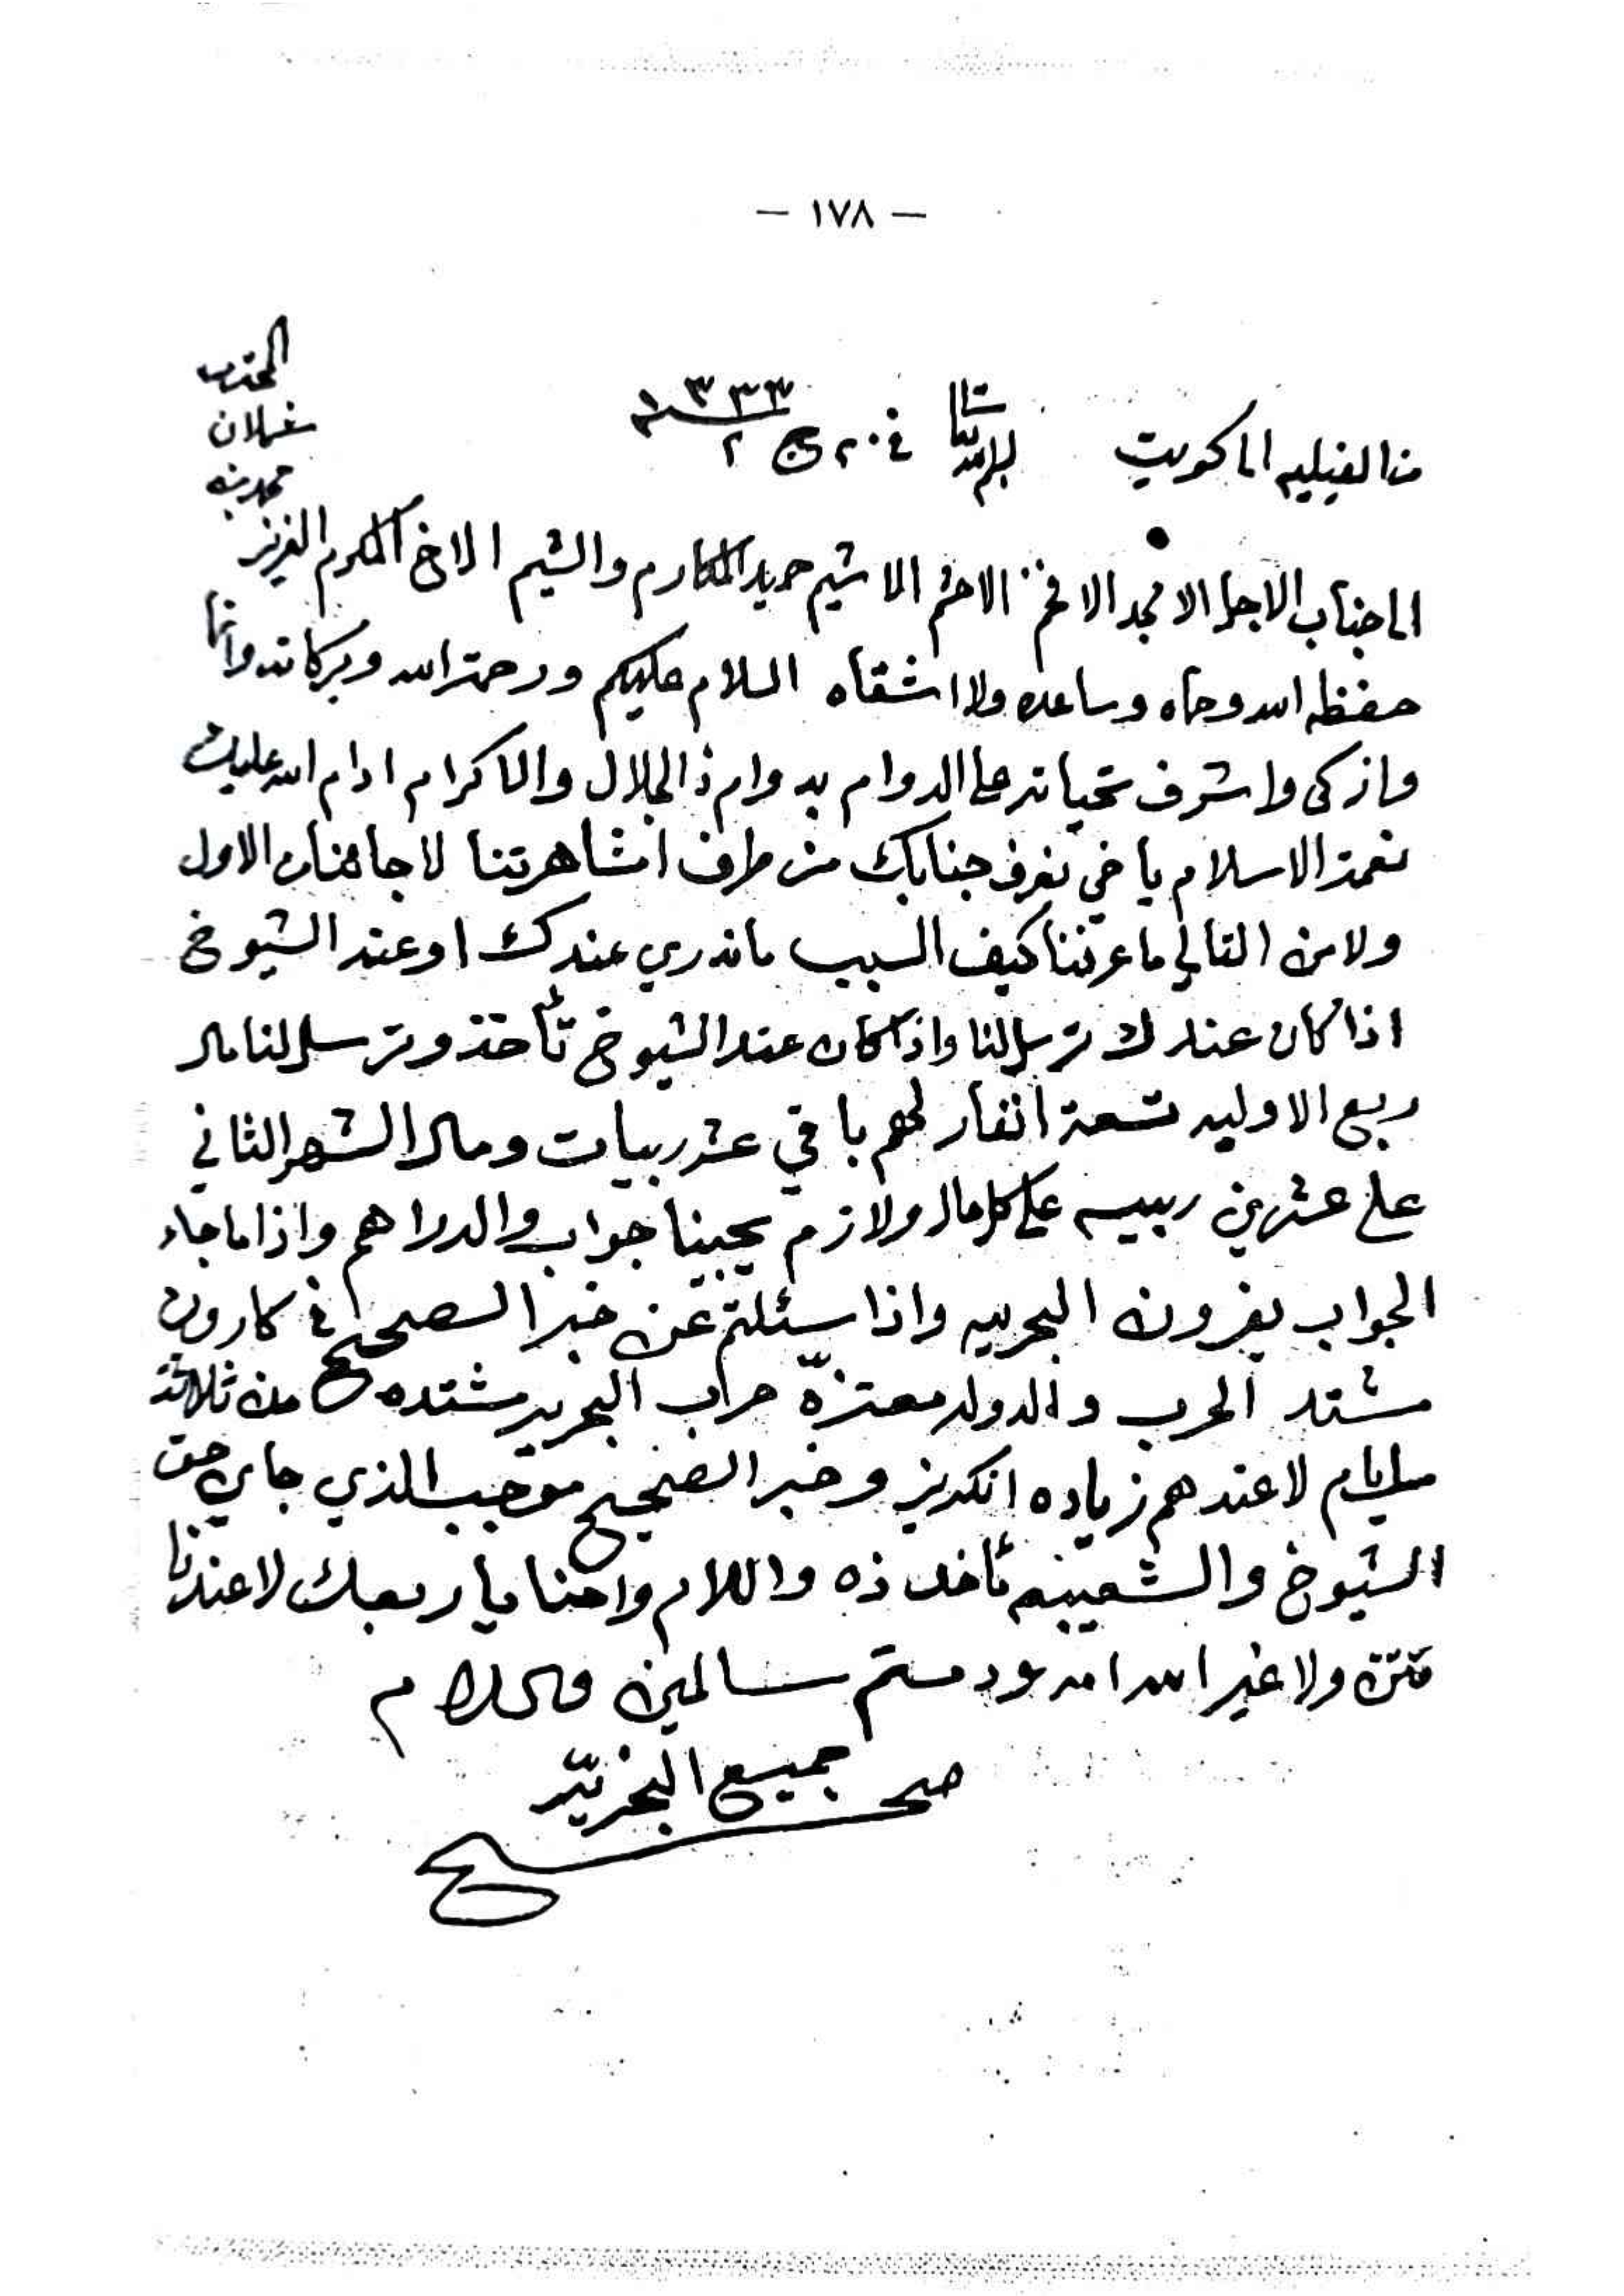 — ١٧٨ —
المحترم
غملان
من الفيليه الى كويت في ٢٠ ج ٢ ١٣٣٣
الى جناب الاجل الامجد الافخم الاحشم الاشيم حميد المكارم والشيم الاخ المكرم العزيز
حفظه الله وحماه وساعده ولا اشقاه السلام عليكم ورحمة الله وبركاته وانما
وازكى واشرف تحياته على الدوام بدوام ذالجلال والاكرام ادام الله عليك
نعمة الاسلام ياخي نعرف جنابك من طرف امشاهرتنا لا جاتنا من الاول
ولا من التالي ما عرفنا كيف السبب ماندري عندك او عند الشيوخ
اذا كان عندك ترسل لنا واذا كان عند الشيوخ تأخذ وترسل لنا مال
ربيع الاوليه تسعة انفار لهم باقي عشر ربيات ومال الشهر الثاني
على عشرين ربيه على كل حال ولازم يجينا جواب والدراهم واذا ما جاء
الجواب يفرون البحريه واذا سئلتم عن خبر الصحيح في كارون
مشتد الحرب والدوله معتزّه حراب البحريه مشتده من ثلاثة
ايام لا عندهم زياده انكريز وخبر الصحيح موجب الذي جاي حق
الشيوخ والشعيبه تأخذ ذه والسلام واحنا يا ربعك لا عندنا
ولا غير الله ودمتم سالمين والسلام
جميع البحريّه
صحيح